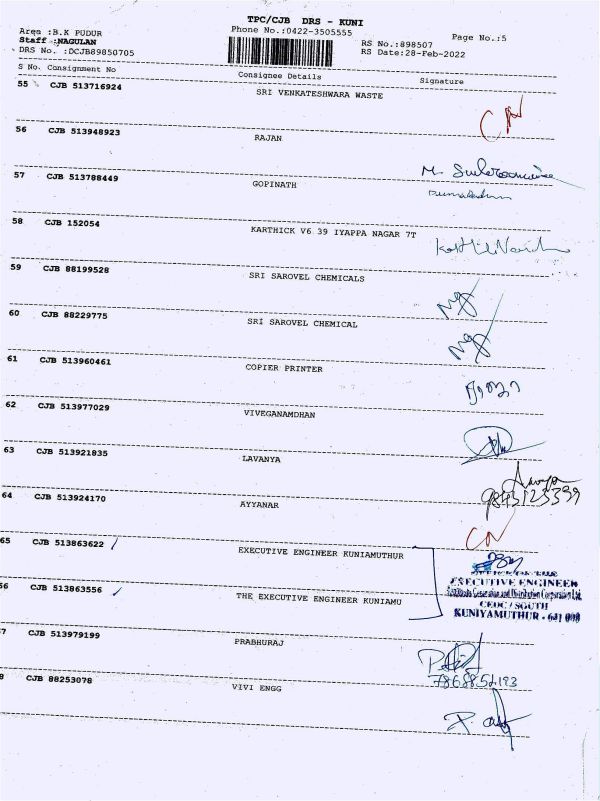 TPC/CJB DRS - KUNI
Area :B.K PUDUR
Phone No.:0422-3505555
Page No.:5
Staff :NAGULAN
RS No.:898507
DRS No. :DCJB89850705
RS Date:28-Feb-2022
S No. Consignment No Consignee Details Signature
55 CJB 513716924 SRI VENKATESHWARA WASTE
CN
56 CJB 513948923 RAJAN
57 CJB 513788449 GOPINATH
58 CJB 152054 KARTHICK V6 39 IYAPPA NAGAR 7T
59 CJB 88199528 SRI SAROVEL CHEMICALS
60 CJB 88229775 SRI SAROVEL CHEMICAL
61 CJB 513960461 COPIER PRINTER
62 CJB 513977029 VIVEGANAMDHAN
63 CJB 513921835 LAVANYA
9843123399
64 CJB 513924170 AYYANAR
CN
65 CJB 513863622 EXECUTIVE ENGINEER KUNIAMUTHUR
EXECUTIVE ENGINEER
56 CJB 513863556 THE EXECUTIVE ENGINEER KUNIAMU
CEDC / SOUTH
KUNIYAMUTHUR - 641 008
7 CJB 513979199 PRABHURAJ
8 CJB 88253078 VIVI ENGG